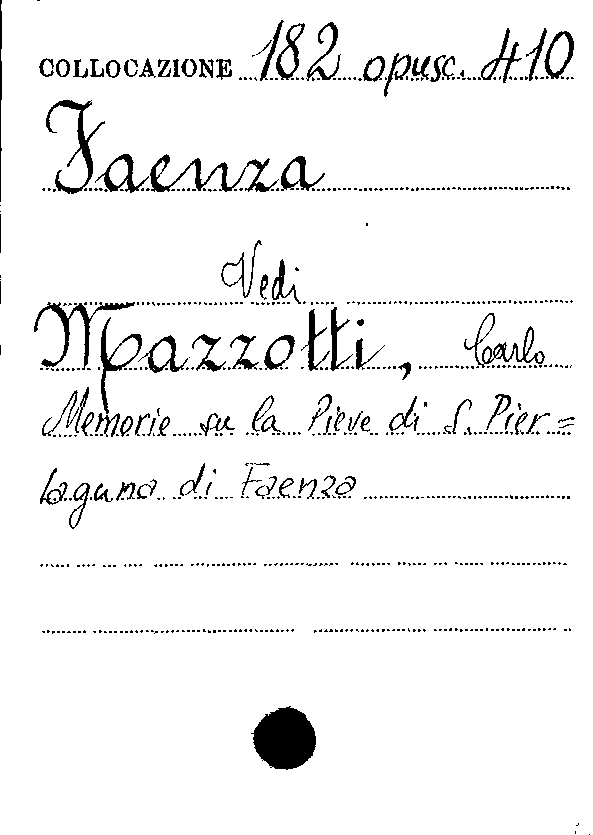 COLLOCAZIONE 182 opusc. 410
Faenza
Vedi
Mazzotti, Carlo
Memorie su la Pieve di S. Pier=
laguna di Faenza